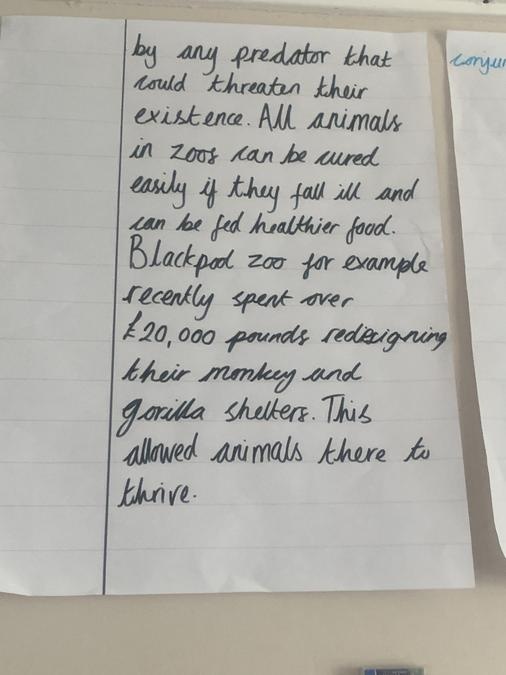 by any predator that
could threaten their
existence. All animals
in zoos can be cured
easily if they fall ill and
can be fed healthier food.
Blackpool zoo for example
recently spent over
£20,000 pounds redecigning
their monkey and
gorilla shelters. This
allowed animals there to
thrive.